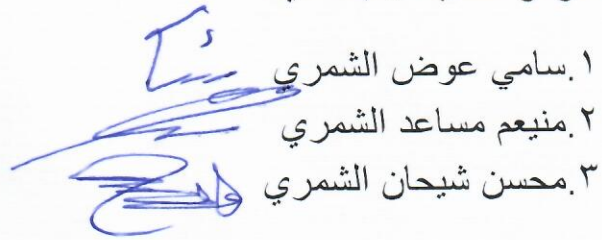 ١.سامي عوض الشمري
٢.منيعم مساعد الشمري
٣.محسن شيحان الشمري